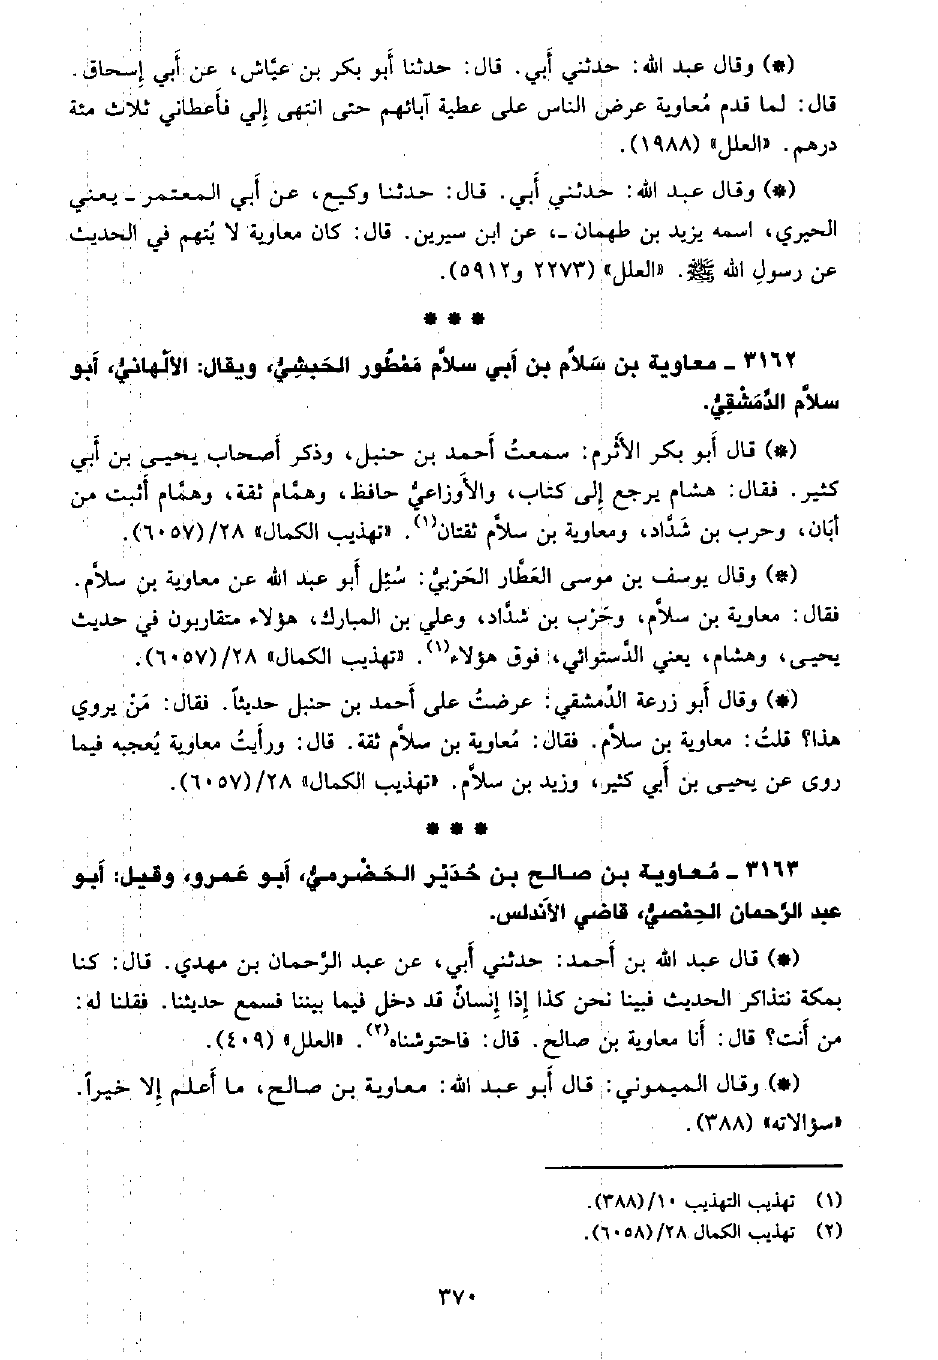 (*) وقال عبد الله: حدثني أَبي. قال: حدثنا أَبو بكر بن عيَّاش، عن أَبي إِسحاق.
قال: لما قدم مُعاوية عرض الناس على عطية آبائهم حتى انتهى إِلي فأَعطاني ثلاث مئة
درهم. «العلل» (١٩٨٨).
(*) وقال عبد الله: حدثني أَبي. قال: حدثنا وكيع، عن أَبي المعتمر ـ يعني
الحيري، اسمه يزيد بن طهمان ـ، عن ابن سيرين. قال: كان معاوية لا يُتهم في الحديث
عن رسولِ الله ﷺ. «العلل» (٢٢٧٣ و٥٩١٢).
* * *
٣١٦٢ ـ معاوية بن سَلاَّم بن أَبي سلاَّم مَمْطُور الحَبشِيُّ، ويقال: الأَلْهانيُّ، أَبو
سلاَّم الدِّمَشْقِيُّ.
(*) قال أَبو بكر الأَثْرم: سمعتُ أَحمد بن حنبل، وذكر أَصحاب يحيى بن أَبي
كثير. فقال: هشام يرجع إِلى كتاب، والأَوزاعيُّ حافظ، وهمَّام ثقة، وهمَّام أَثبت من
أَبَان، وحرب بن شَدَّاد، ومعاوية بن سلاَّم ثقتان(١). «تهذيب الكمال» ٢٨/(٦٠٥٧).
(*) وقال يوسف بن موسى العَطَّار الحَرْبيُّ: سُئِل أَبو عبد الله عن معاوية بن سلاَّم.
فقال: معاوية بن سلاَّم، وحَرْب بن شدَّاد، وعلي بن المبارك، هؤلاء متقاربون في حديث
يحيى، وهشام، يعني الدَّستوائي، فوق هؤلاء(١). «تهذيب الكمال» ٢٨/(٦٠٥٧).
(*) وقال أَبو زرعة الدِّمشقي: عرضتُ على أَحمد بن حنبل حديثاً. فقال: مَنْ يروي
هذا؟ قلتُ: معاوية بن سلاَّم. فقال: مُعاوية بن سلاَّم ثقة. قال: ورأَيتُ معاوية يُعجبه فيما
روى عن يحيى بن أَبي كثير، وزيد بن سلاَّم. «تهذيب الكمال» ٢٨/(٦٠٥٧).
* * *
٣١٦٣ ـ مُعاوية بن صالح بن حُدَيْر الحَضْرميُّ، أَبو عَمرو، وقيل: أَبو
عبد الرَّحمان الحِمْصيُّ، قاضي الأَندلس.
(*) قال عبد الله بن أَحمد: حدثني أَبي، عن عبد الرَّحمان بن مهدي. قال: كنا
بمكة نتذاكر الحديث فبينا نحن كذا إِذا إِنسانٌ قد دخل فيما بيننا فسمع حديثنا. فقلنا له:
من أَنت؟ قال: أَنا معاوية بن صالح. قال: فاحتوشناه(٢). «العلل» (٤٠٩).
(*) وقال الميموني: قال أَبو عبد الله: معاوية بن صالح، ما أَعلم إِلا خيراً.
«سؤالاته» (٣٨٨).
(١) تهذيب التهذيب ١٠/(٣٨٨).
(٢) تهذيب الكمال ٢٨/(٦٠٥٨).
٣٧٠